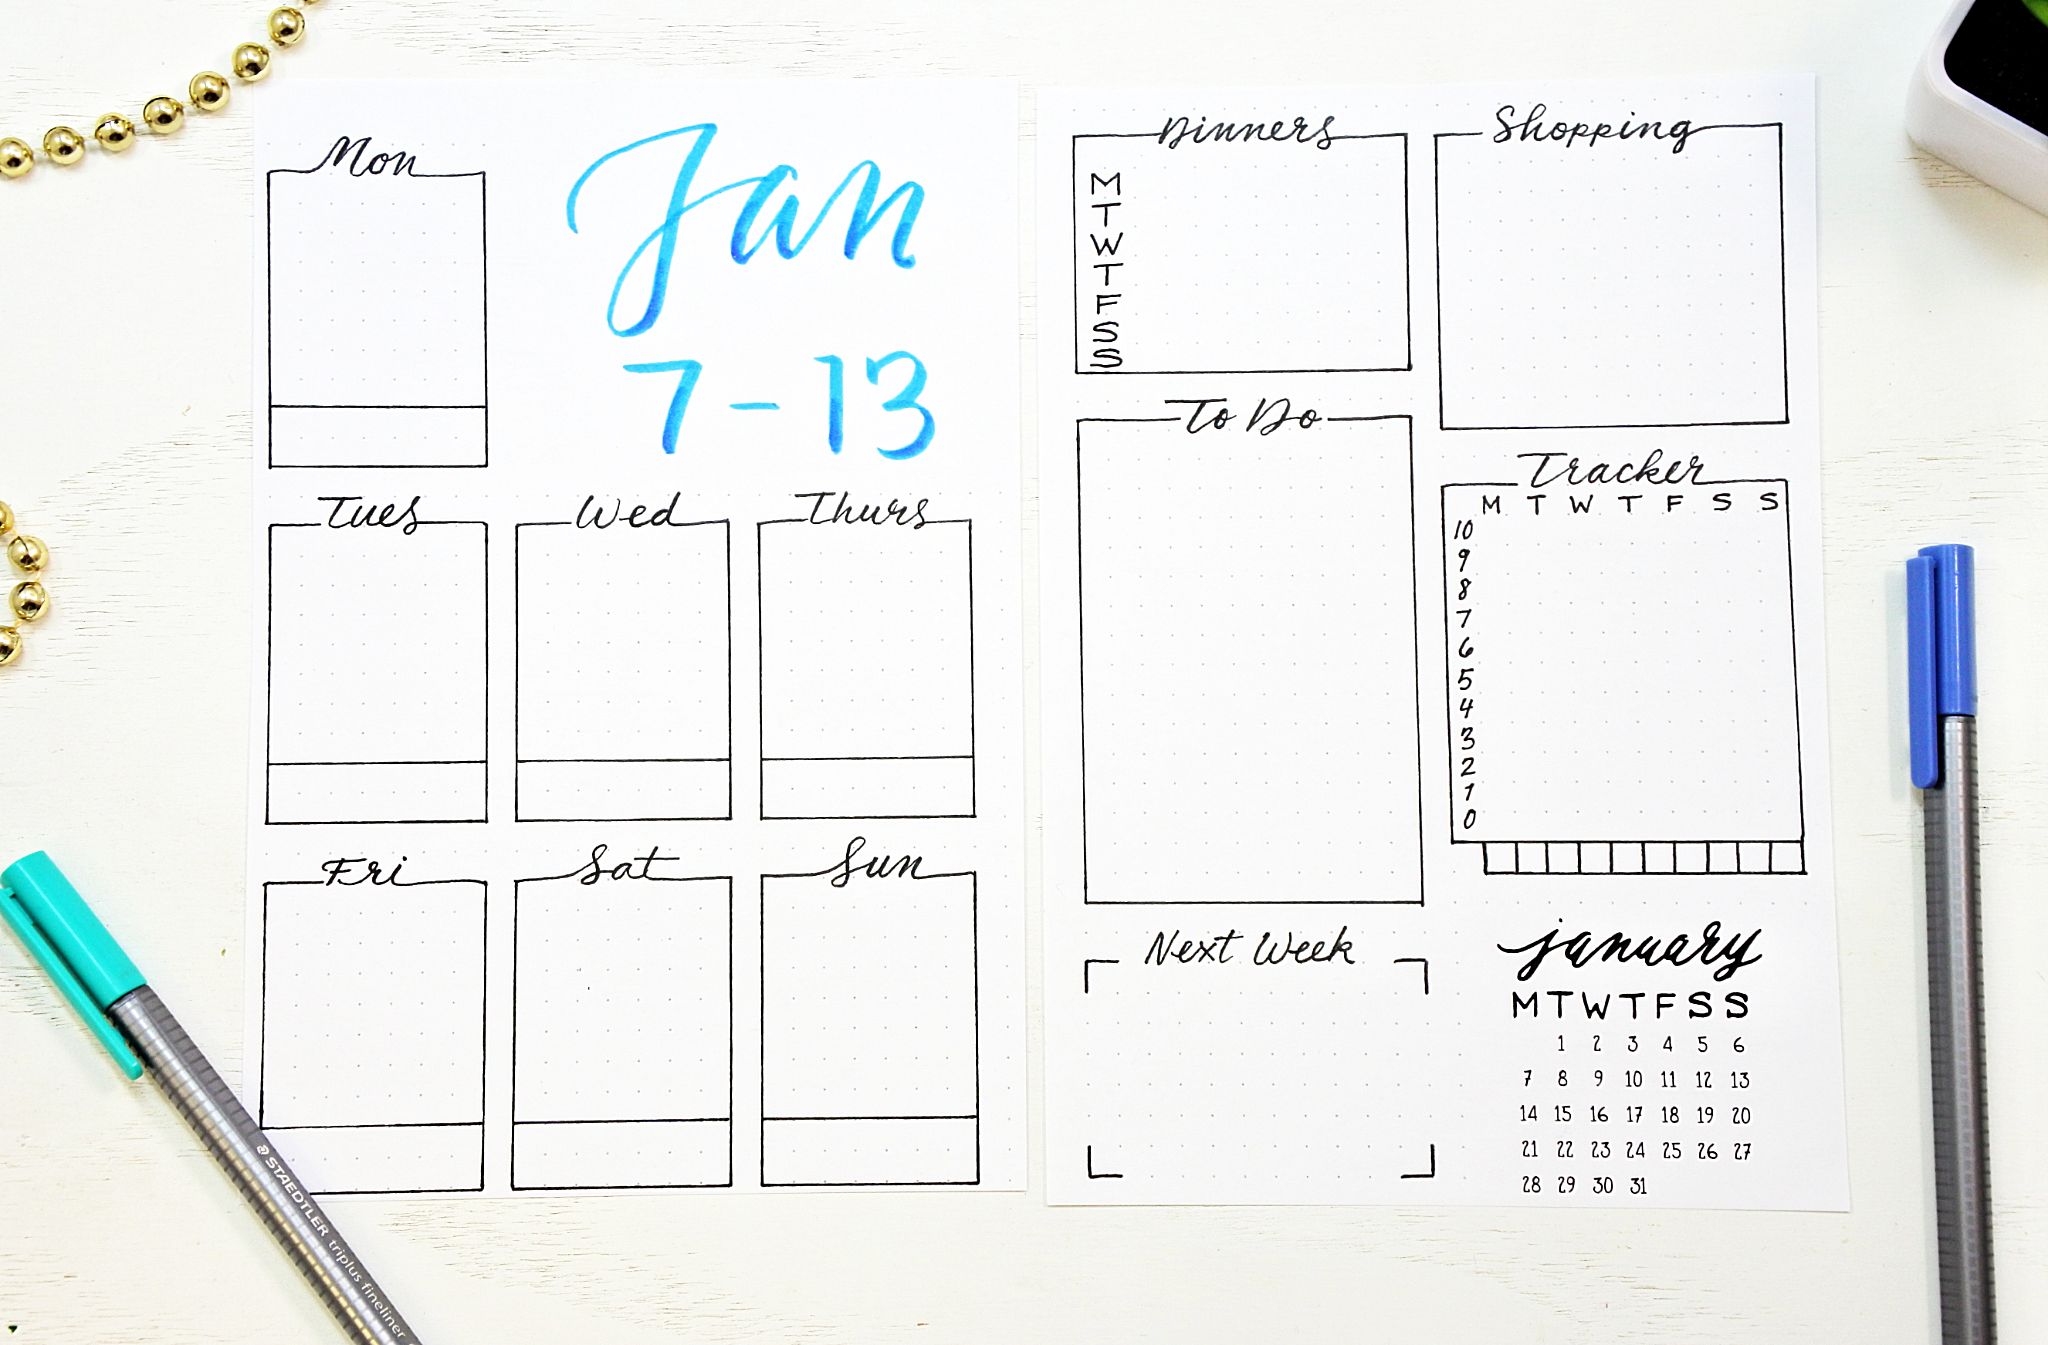 Mon
Jan
7 - 13
Tues Wed Thurs
Fri Sat Sun
Dinners
M
T
W
T
F
S
S
Shopping
To Do
Tracker
M T W T F S S
10
9
8
7
6
5
4
3
2
1
0
Next Week
january
M T W T F S S
1 2 3 4 5 6
7 8 9 10 11 12 13
14 15 16 17 18 19 20
21 22 23 24 25 26 27
28 29 30 31
STAEDTLER triplus fineliner